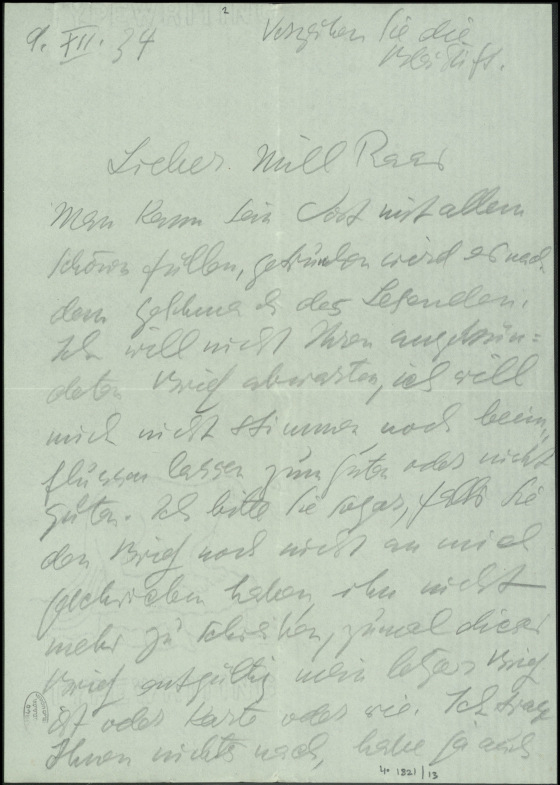 2
9. XII. 34 Verzeihen Sie die
Bleistift.
Lieber Mill Raas
Man kann sein Wort mit allem
Schönen füllen, gefunden wird es nach
dem Geschmack des Lesenden.
Ich will nicht Ihren angekün=
deten Brief abwarten, ich will
mich nicht stimmen noch beein,
flussen lassen zum guten oder nicht
guten. Ich bitte Sie sogar, falls Sie
den Brief noch nicht an mich
geschrieben haben, ihn nicht
mehr zu schreiben, zumal dieser
Brief entgültig mein letzter Brief
ist oder Karte oder wie. Ich trag
Ihnen nichts nach, habe ja auch
4° 1821 / 13